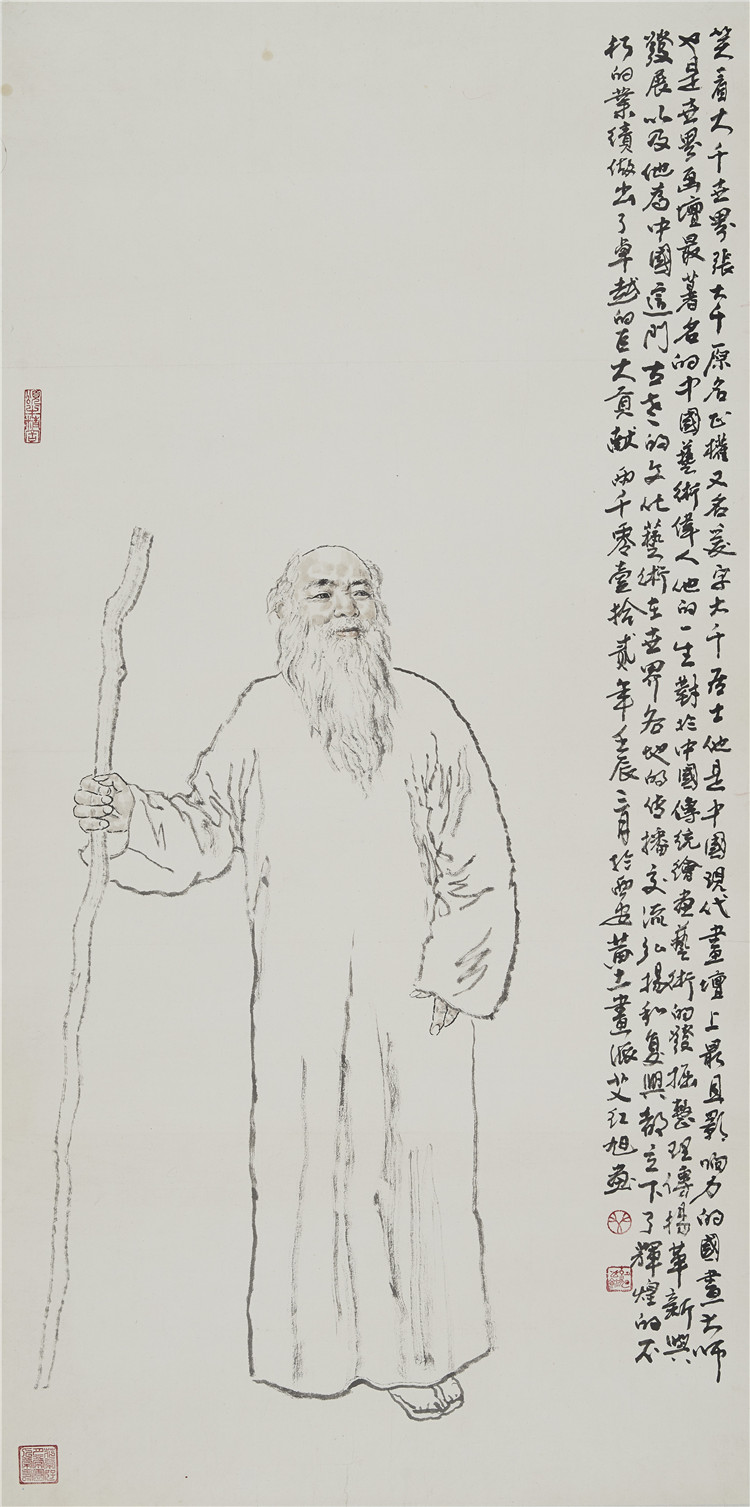 笑看大千世界張大千原名正權又名爰字大千居士他是中國現代畫壇上最具影响力的國畫大师
也是世界画壇最著名的中國藝術偉人他的一生對於中國傳统繪畫藝術的發掘整理传揚革新與
發展以及他為中國這門古老的文化藝術在世界各地的传播交流弘揚和复興都立下了輝煌的不
朽的業績做出了卓越的巨大貢献 两千零壹拾貳年壬辰三月於西安黄土畫派艾红旭畫